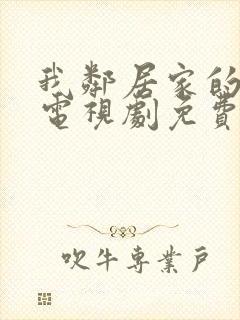 我鄰居家的
電視劇免費
吹牛專業戶